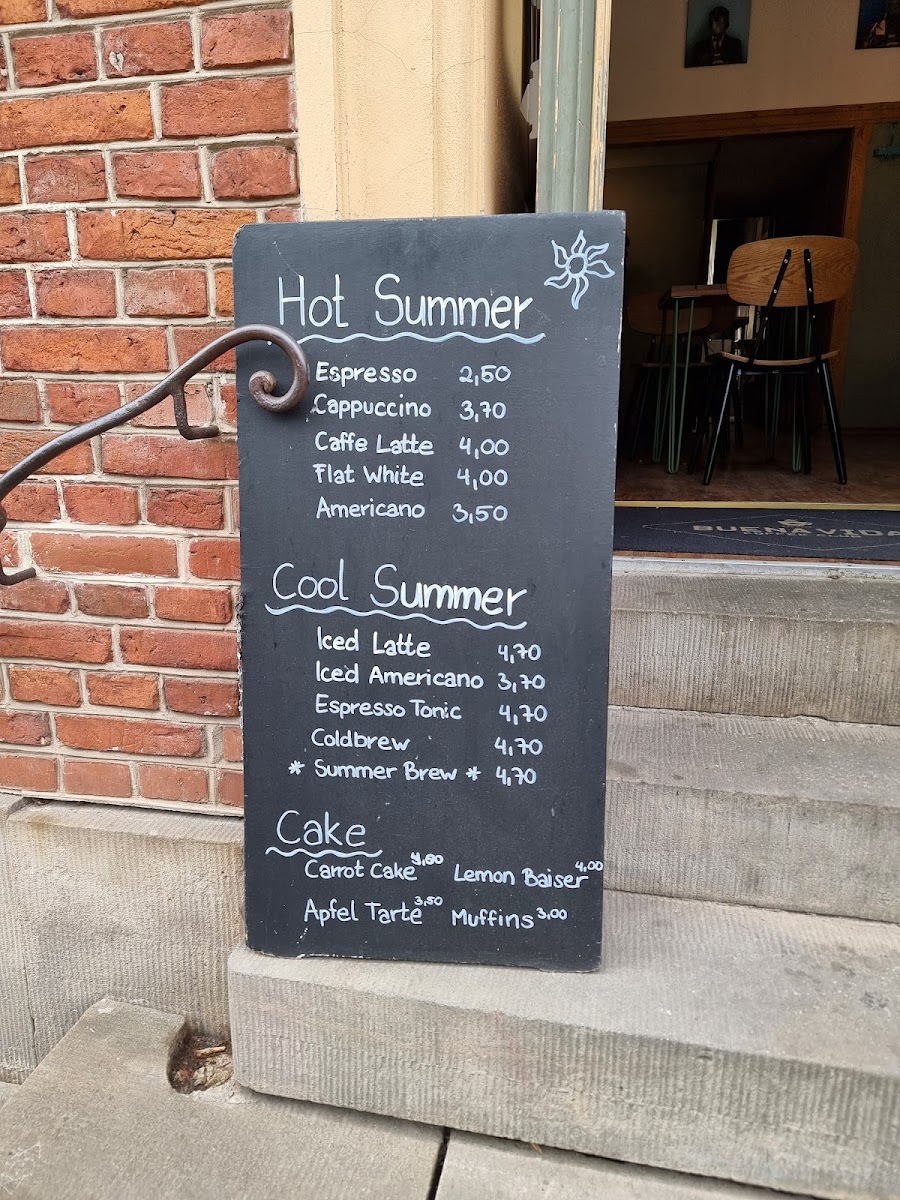 Hot Summer
Espresso 2,50
Cappuccino 3,70
Caffe Latte 4,00
Flat White 4,00
Americano 3,50
Cool Summer
Iced Latte 4,70
Iced Americano 3,70
Espresso Tonic 4,70
Coldbrew 4,70
* Summer Brew * 4,70
Cake
Carrot Cake Lemon Baiser 4,00
Apfel Tarte 3,50 Muffins 3,00
BUENA VIDA